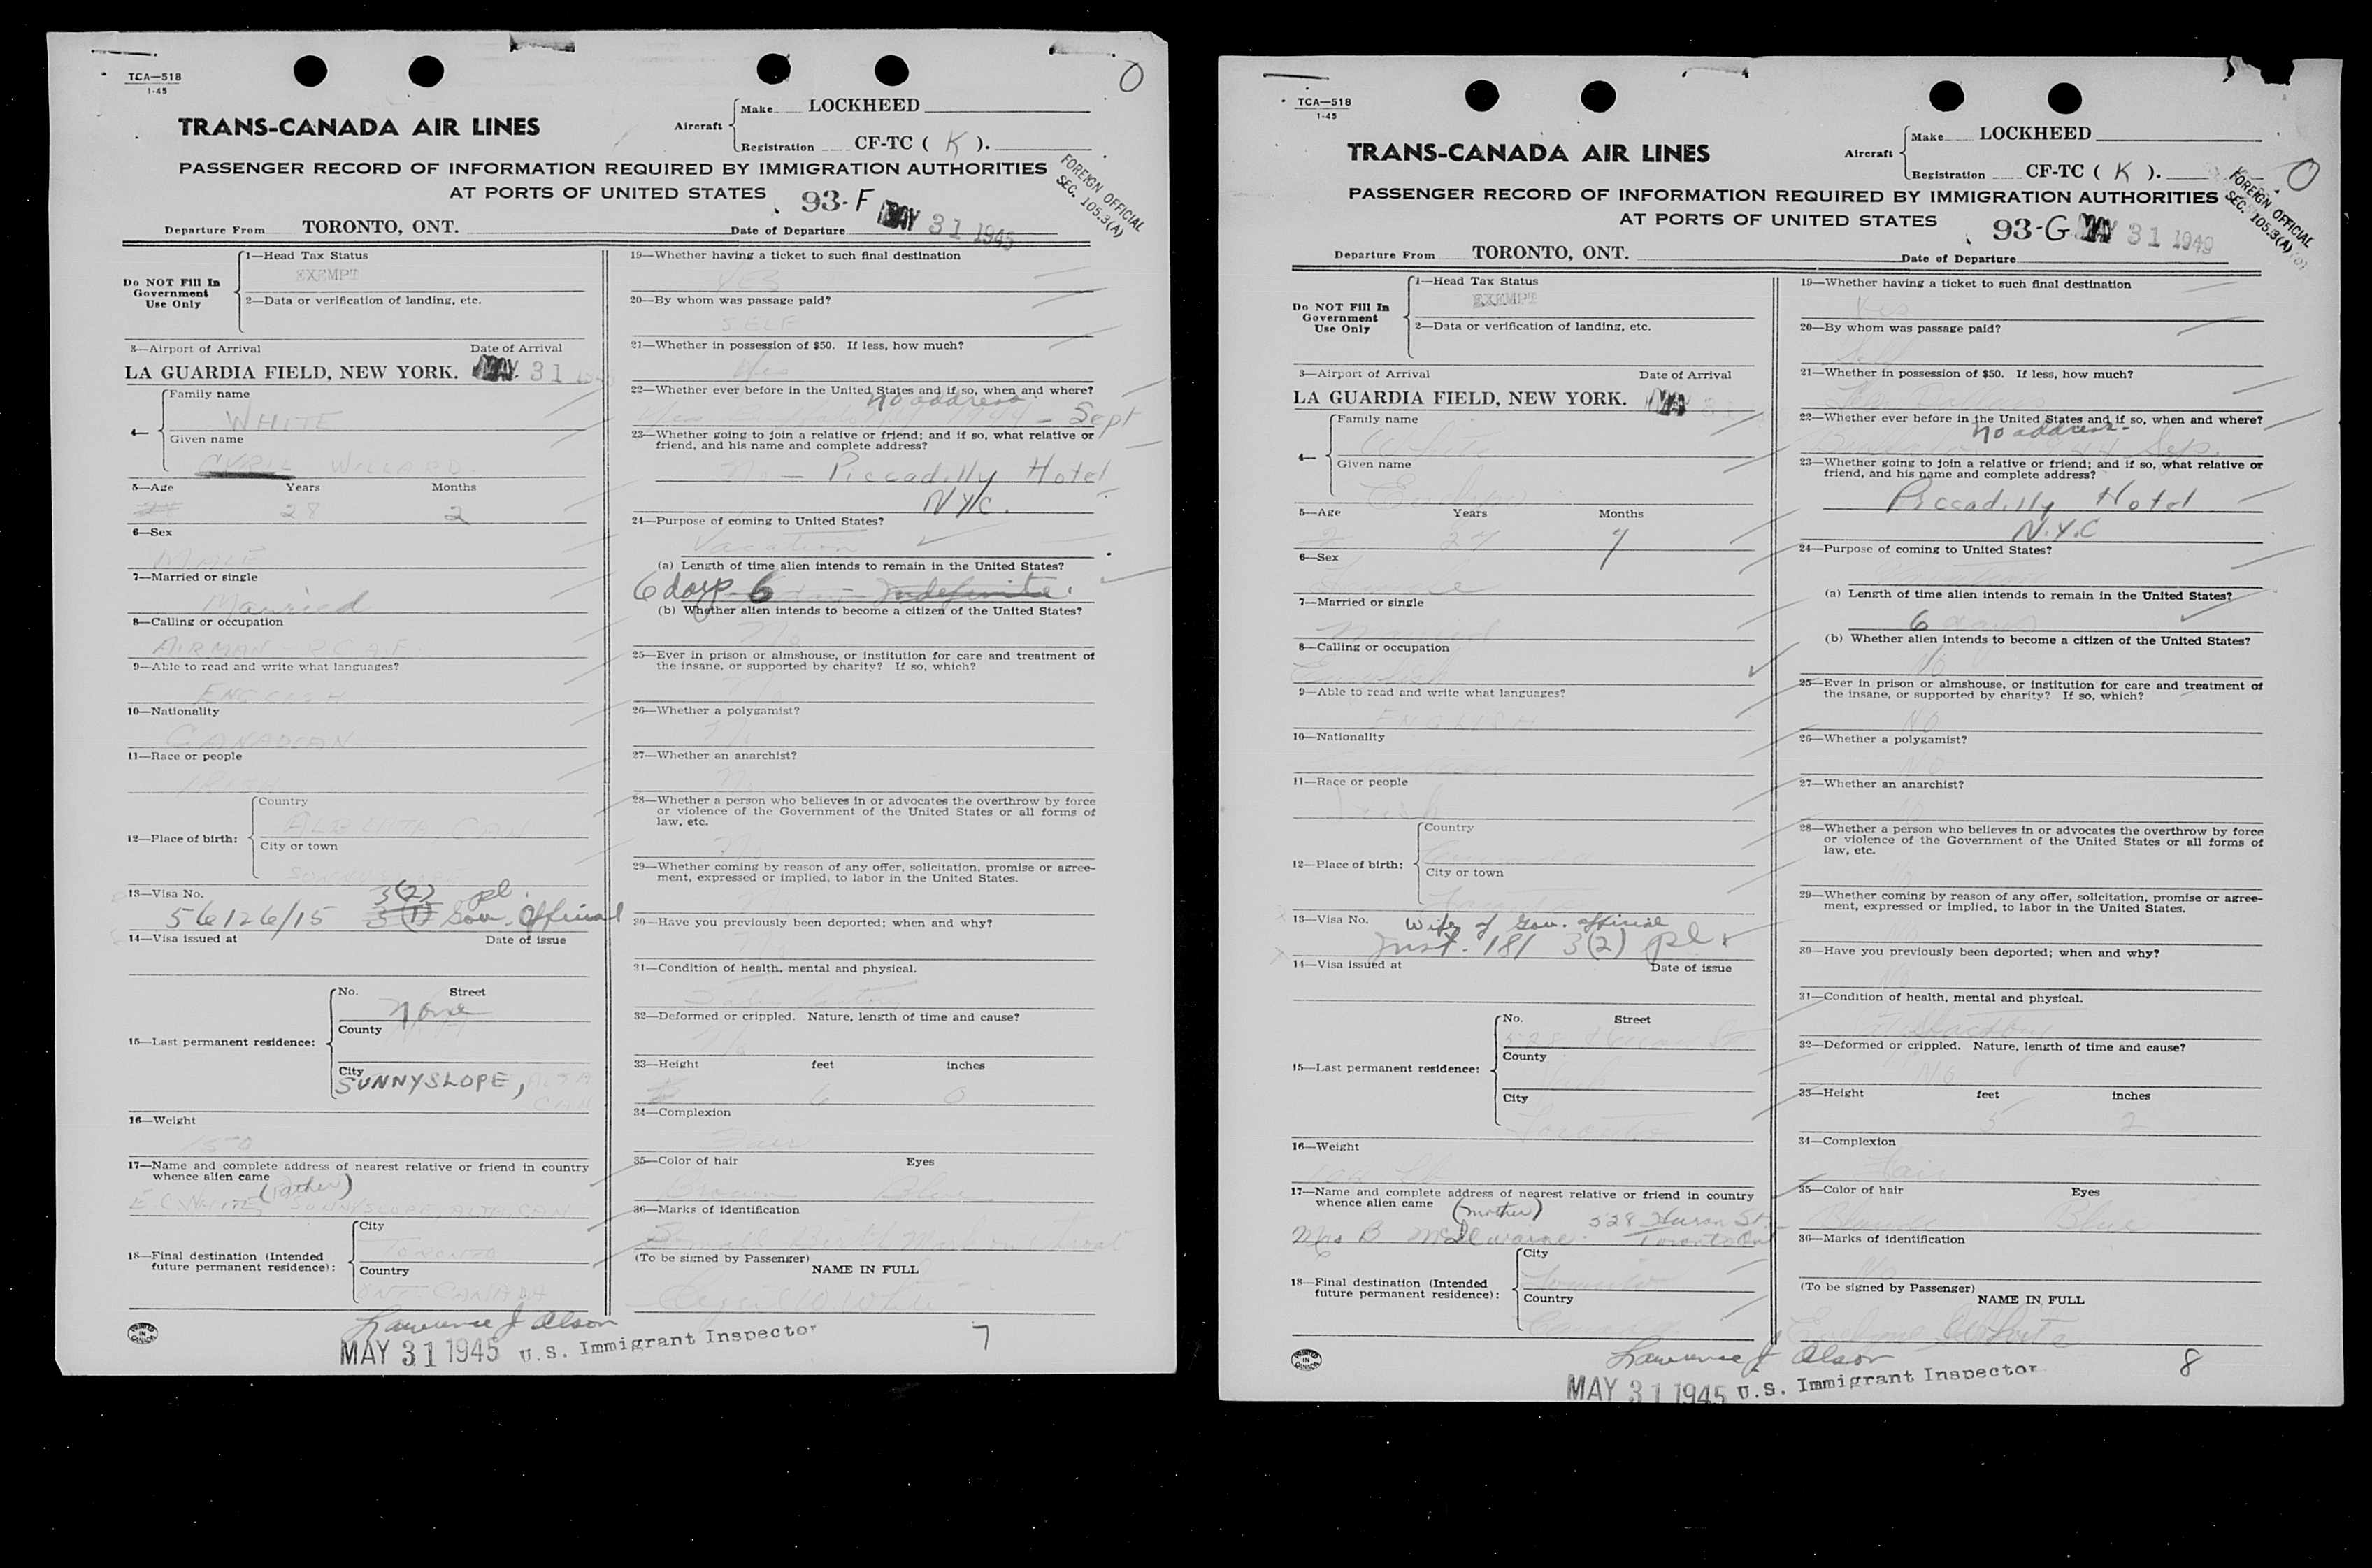 TCA—518
1-45
TRANS-CANADA AIR LINES
Aircraft
Make LOCKHEED
Registration CF-TC ( K ).
PASSENGER RECORD OF INFORMATION REQUIRED BY IMMIGRATION AUTHORITIES
AT PORTS OF UNITED STATES
93-F
FOREIGN OFFICIAL
SEC. 105.3(A)
O
Departure From TORONTO, ONT.
Date of Departure MAY 31 1945
Do NOT Fill In
Government
Use Only
1—Head Tax Status
EXEMPT
2—Data or verification of landing, etc.
3—Airport of Arrival Date of Arrival
LA GUARDIA FIELD, NEW YORK. MAY 31
4—
Family name
WHITE
Given name
CYRIL WILLARD.
5—Age Years Months
28 2
6—Sex
MALE
7—Married or single
Married
8—Calling or occupation
AIRMAN - R.C.A.F.
9—Able to read and write what languages?
ENGLISH
10—Nationality
CANADIAN
11—Race or people
IRISH
12—Place of birth:
Country
ALBERTA, CAN
City or town
SUNNYSLOPE
13—Visa No.
3(2) pl.
56126/15 3(1) Gov. Official
14—Visa issued at Date of issue
15—Last permanent residence:
No. Street
None
County
City
SUNNYSLOPE, ALTA
CAN
16—Weight
150
17—Name and complete address of nearest relative or friend in country
whence alien came
(Father)
E.C. WHITE, SUNNYSLOPE, ALTA. CAN
18—Final destination (Intended
future permanent residence):
City
TORONTO
Country
ONT. CANADA
PRINTED IN CANADA
Lawrence J Olson
MAY 31 1945 U.S. Immigrant Inspector
19—Whether having a ticket to such final destination
YES
20—By whom was passage paid?
SELF
21—Whether in possession of $50. If less, how much?
Yes
22—Whether ever before in the United States and if so, when and where?
no address
Yes - Sept
23—Whether going to join a relative or friend; and if so, what relative or
friend, and his name and complete address?
No — Piccadilly Hotel
NYC.
24—Purpose of coming to United States?
Vacation
(a) Length of time alien intends to remain in the United States?
6 days 6 Indefinite
(b) Whether alien intends to become a citizen of the United States?
No
25—Ever in prison or almshouse, or institution for care and treatment of
the insane, or supported by charity? If so, which?
No
26—Whether a polygamist?
No
27—Whether an anarchist?
No
28—Whether a person who believes in or advocates the overthrow by force
or violence of the Government of the United States or all forms of
law, etc.
No
29—Whether coming by reason of any offer, solicitation, promise or agree-
ment, expressed or implied, to labor in the United States.
30—Have you previously been deported; when and why?
31—Condition of health, mental and physical.
32—Deformed or crippled. Nature, length of time and cause?
No
33—Height feet inches
6 0
34—Complexion
Fair
35—Color of hair Eyes
Brown Blue
36—Marks of identification
Small birth mark on throat
(To be signed by Passenger)
NAME IN FULL
Cyril W White
7
TCA—518
1-45
TRANS-CANADA AIR LINES
Aircraft
Make LOCKHEED
Registration CF-TC ( K ).
PASSENGER RECORD OF INFORMATION REQUIRED BY IMMIGRATION AUTHORITIES
AT PORTS OF UNITED STATES
93-G
MAY 31 1945
FOREIGN OFFICIAL
SEC. 105.3(A)
O
Departure From TORONTO, ONT.
Date of Departure
Do NOT Fill In
Government
Use Only
1—Head Tax Status
EXEMPT
2—Data or verification of landing, etc.
3—Airport of Arrival Date of Arrival
LA GUARDIA FIELD, NEW YORK. MAY 31
4—
Family name
White
Given name
5—Age Years Months
27 7
6—Sex
Female
7—Married or single
Married
8—Calling or occupation
9—Able to read and write what languages?
ENGLISH
10—Nationality
11—Race or people
Irish
12—Place of birth:
Country
Canada
City or town
Toronto
13—Visa No.
Wife of Gov. official
Inst. 181 3(2) pl.
14—Visa issued at Date of issue
15—Last permanent residence:
No. Street
528 Huron St
County
York
City
Toronto
16—Weight
17—Name and complete address of nearest relative or friend in country
whence alien came
(mother)
528 Huron St
Mrs B McIlwaine. Toronto Ont
18—Final destination (Intended
future permanent residence):
City
Toronto
Country
Canada
PRINTED IN CANADA
Lawrence J Olson
MAY 31 1945 U.S. Immigrant Inspector
19—Whether having a ticket to such final destination
Yes
20—By whom was passage paid?
Self
21—Whether in possession of $50. If less, how much?
22—Whether ever before in the United States and if so, when and where?
no address-
Sep.
23—Whether going to join a relative or friend; and if so, what relative or
friend, and his name and complete address?
Piccadilly Hotel
N.Y.C
24—Purpose of coming to United States?
(a) Length of time alien intends to remain in the United States?
6 days
(b) Whether alien intends to become a citizen of the United States?
No
25—Ever in prison or almshouse, or institution for care and treatment of
the insane, or supported by charity? If so, which?
NO
26—Whether a polygamist?
NO
27—Whether an anarchist?
28—Whether a person who believes in or advocates the overthrow by force
or violence of the Government of the United States or all forms of
law, etc.
29—Whether coming by reason of any offer, solicitation, promise or agree-
ment, expressed or implied, to labor in the United States.
30—Have you previously been deported; when and why?
No
31—Condition of health, mental and physical.
32—Deformed or crippled. Nature, length of time and cause?
No
33—Height feet inches
5 2
34—Complexion
Fair
35—Color of hair Eyes
Blonde Blue
36—Marks of identification
No
(To be signed by Passenger)
NAME IN FULL
White
8